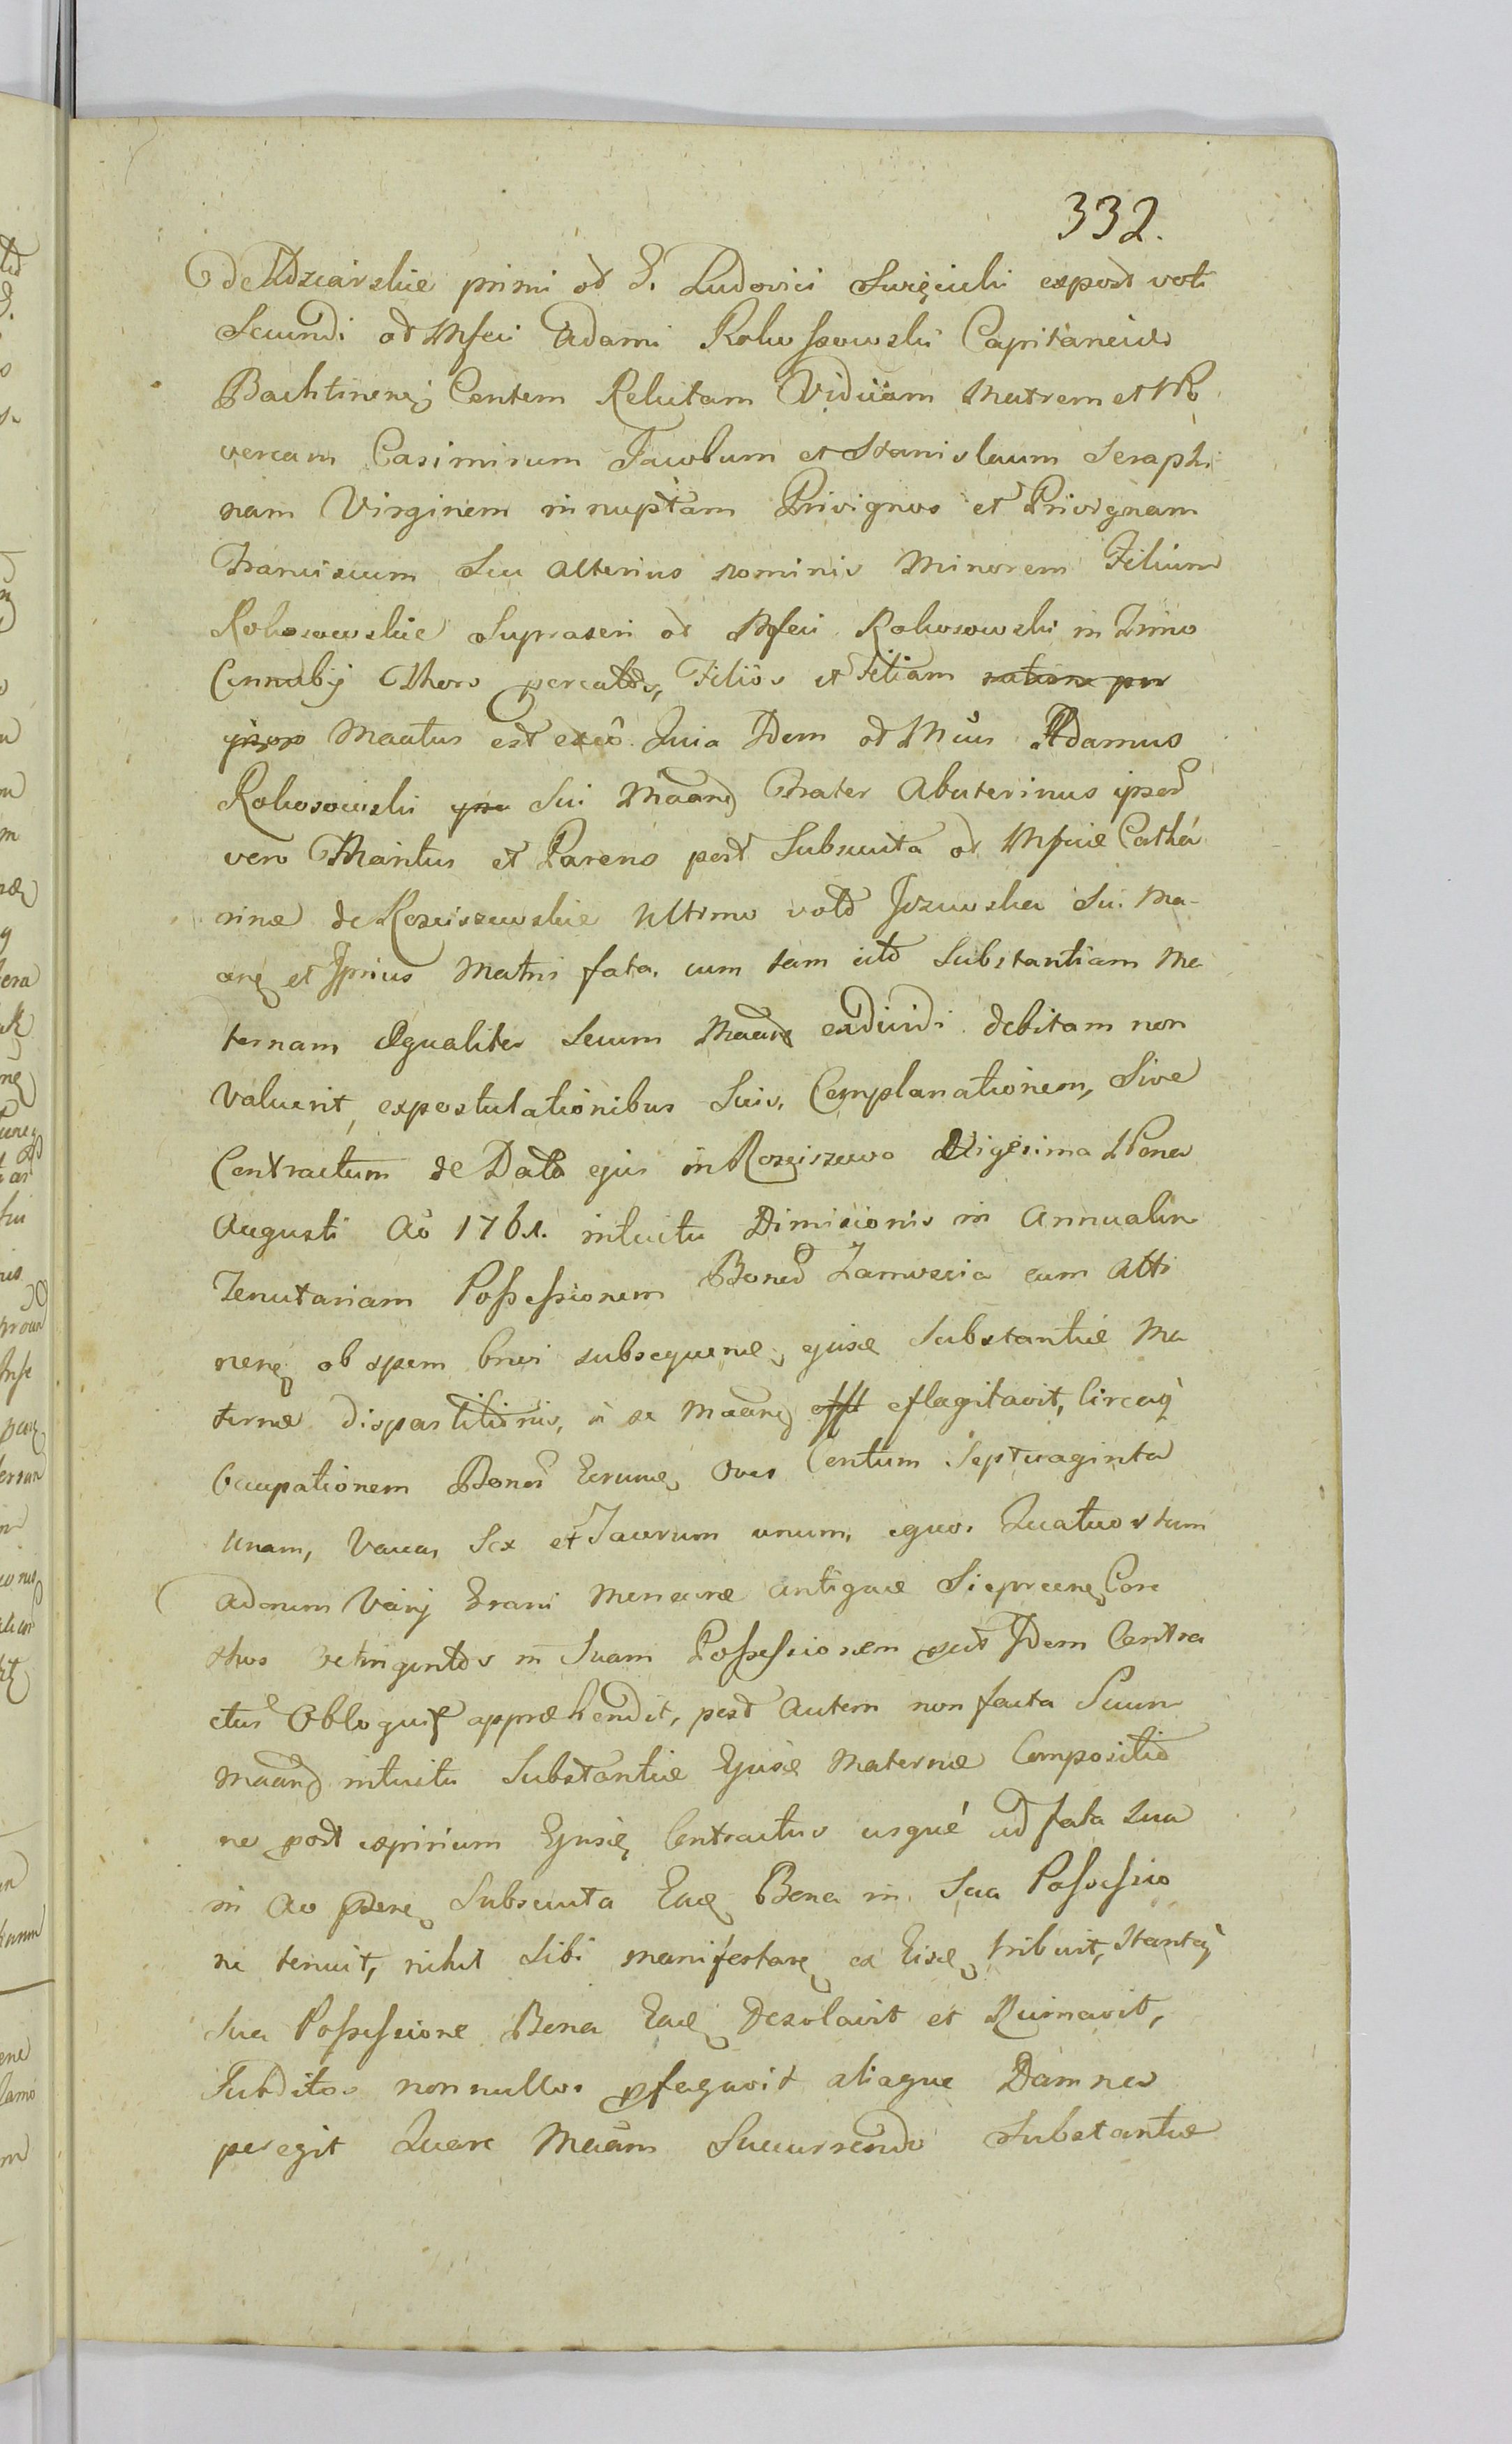 332.
de Udziarskie primi od G. Ludovici Swięcicki expost voti
Secundi od Mfci Adami Rokossowski Capitaneide
Bachtinens Contem Relictam Viduam Matrem et No
vercam Casimirum Jacobum et Stanislaum Seraphi
nam Virginem innuptam Privignos et Privignam
Franciscum Seu alterius nominis Minorem Filium
Rokosowskie Suprascri od Mfci Rokosowski in Imo
Connubij Thoro percatos, Filios et Filiam ratione por
ijsox Maatus est exeo. Quia Idem od Mcus Adamus
Rokosowski ipse Sui Maand Frater Abuterinus ipsod
vero Maritus et Parens post Subsecuta od Mficie Catha
rinæ de Kosciszewskie Ultimo voto Jezewska Sui Ma-
arẹ et Ipsius Matris fata, cum tam cito Substantiam Ma
ternam Æqualiter Secum Maarẹ exdividi debitam non
Valuerit, expostulationibus Suis, Complanationem, Sive
Contractum de Dato ejus in Kosciszewo Vigesima Nona
Augusti Ao 1761. intuitu Dimisionis in Annualem
Tenutariam Possessionem Bonor Zamoscia cum Atti
nenẹ ob spem brevi subsequenẹ, ejusdẹ Substantiæ Ma
ternæ dispartitionis, a se Maand effl eflagitavit, Circaq
Occupationem Bonor Eorumẹ, Oves Centum Septuaginta
Unam, Vaccas Sex et Taurum unum, equos Quatuor tum
adonum Varij Grani Mensuræ antiquæ Sieprcensẹ Core
thos retingintos in Suam Possessionem put Idem Contra
ctus Obloquiẹ appræhendit, post autem non facta Secum
Maand intuitu Substantiæ Ejusẹ Maternæ Compositio
ne post expirium Ejusẹ Contractus usque ad fata sua
in Ao pseneẹ Subsecuta Eaẹ Bona in Sua Possessio
ne tenuit, nihil Sibi manifestarẹ ex Eisẹ tribuit, Stanteq
Sua Possessione Bona Eaẹ Desolavit et Ruinavit,
Subditos nonnullos pfugavit aliaque Damna
peregit Quare Maam Succurrendo Substantiæ